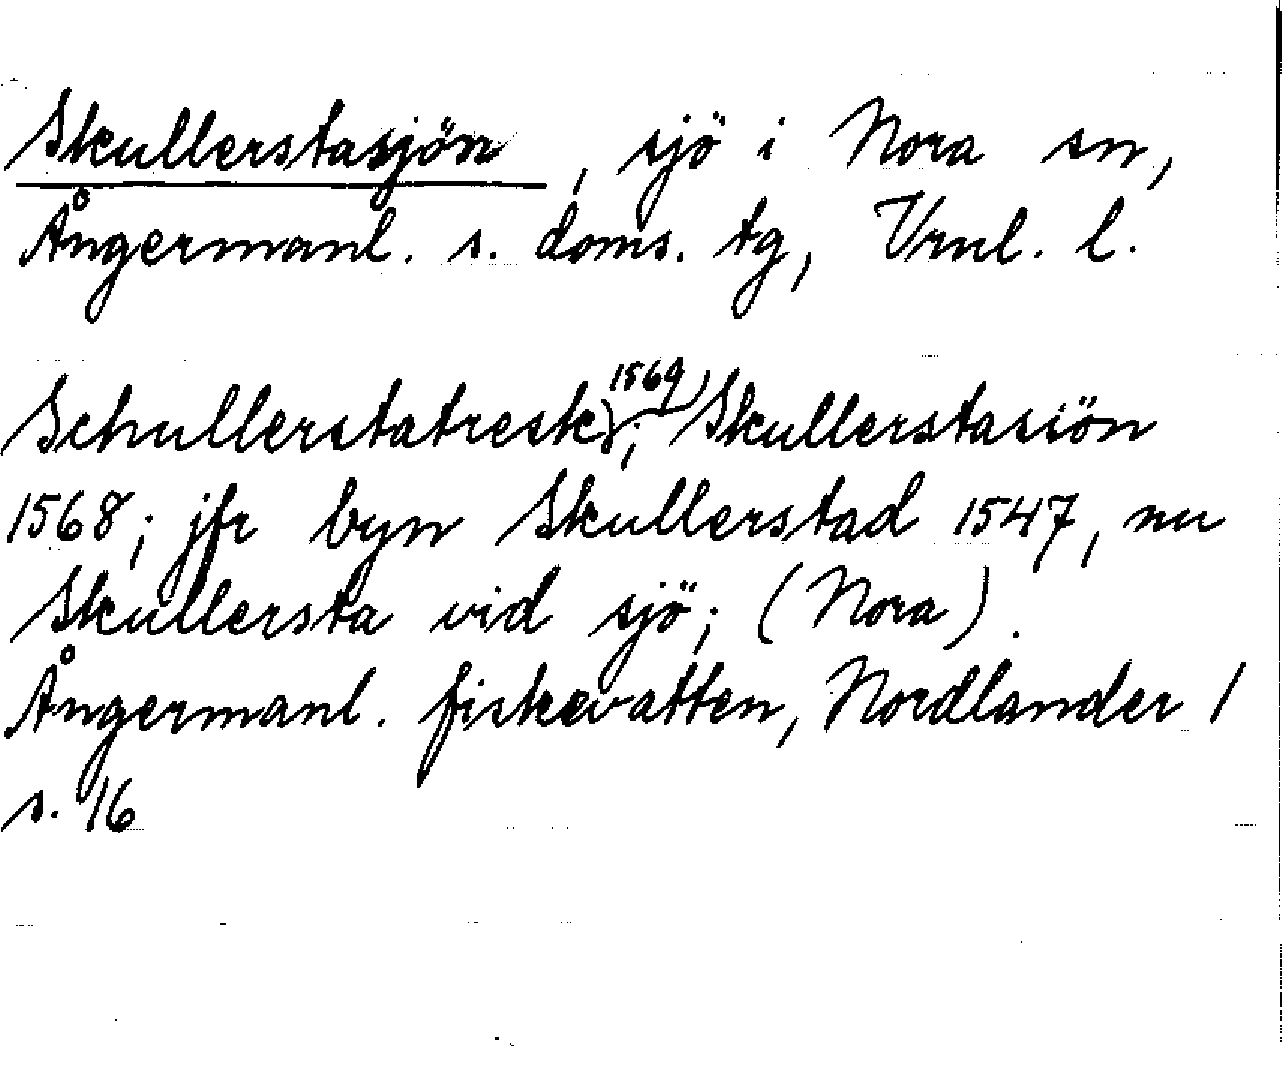 Skullerstasjön, sjö i Nora sn,
Ångermanl. s. doms. tg, Vrnl. l.
Schullerstatresk 1569; Skullerstasiön
1568; jfr byn Skullerstad 1547, nu
Skullersta vid sjö; (Nora).
Ångermanl. fiskevatten, Nordlander 1
s. 16